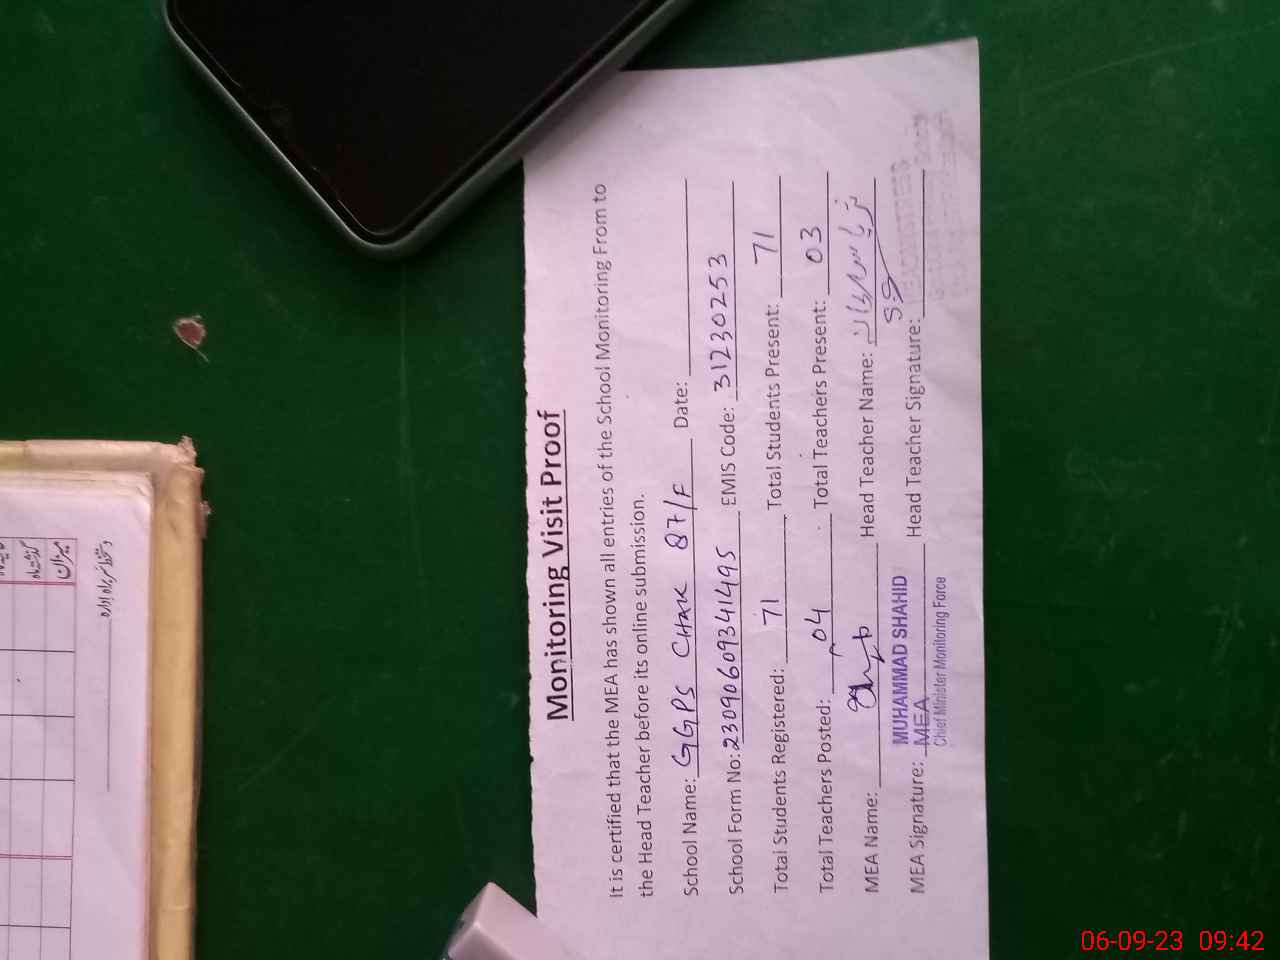 Monitoring Visit Proof
It is certified that the MEA has shown all entries of the School Monitoring From to
the Head Teacher before its online submission.
School Name: GGPS CHAK 87/F Date:
School Form No: 23090609341495 EMIS Code: 31230253
Total Students Registered: 71 Total Students Present: 71
Total Teachers Posted: 04 Total Teachers Present: 03
MEA Name: Head Teacher Name:
MUHAMMAD SHAHID
MEA Signature: MEA Head Teacher Signature:
Chief Minister Monitoring Force
HEADMISTRESS
میزان
06-09-23 09:42